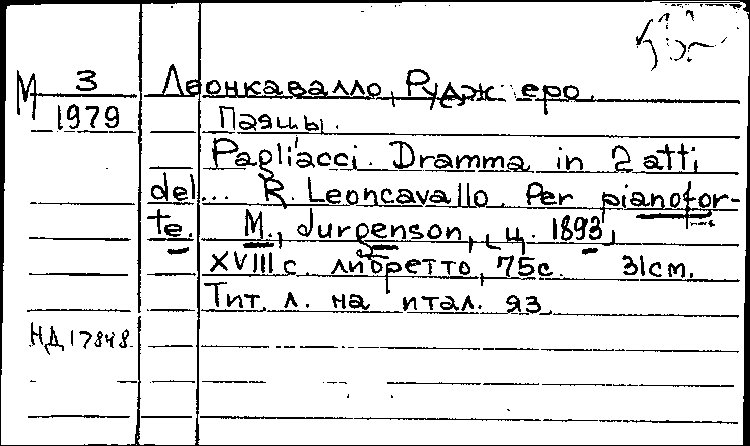 М 3 Леонкавалло, Руджеро.
1979 Паяцы.
Pagliacci. Dramma in 2 atti
del... R. Leoncavallo. Per pianofor-
te. М., Jurgenson, [ц. 1893]
XVIII с. либретто, 75с. 31см.
Тит. л. на итал. яз.
НД 17848